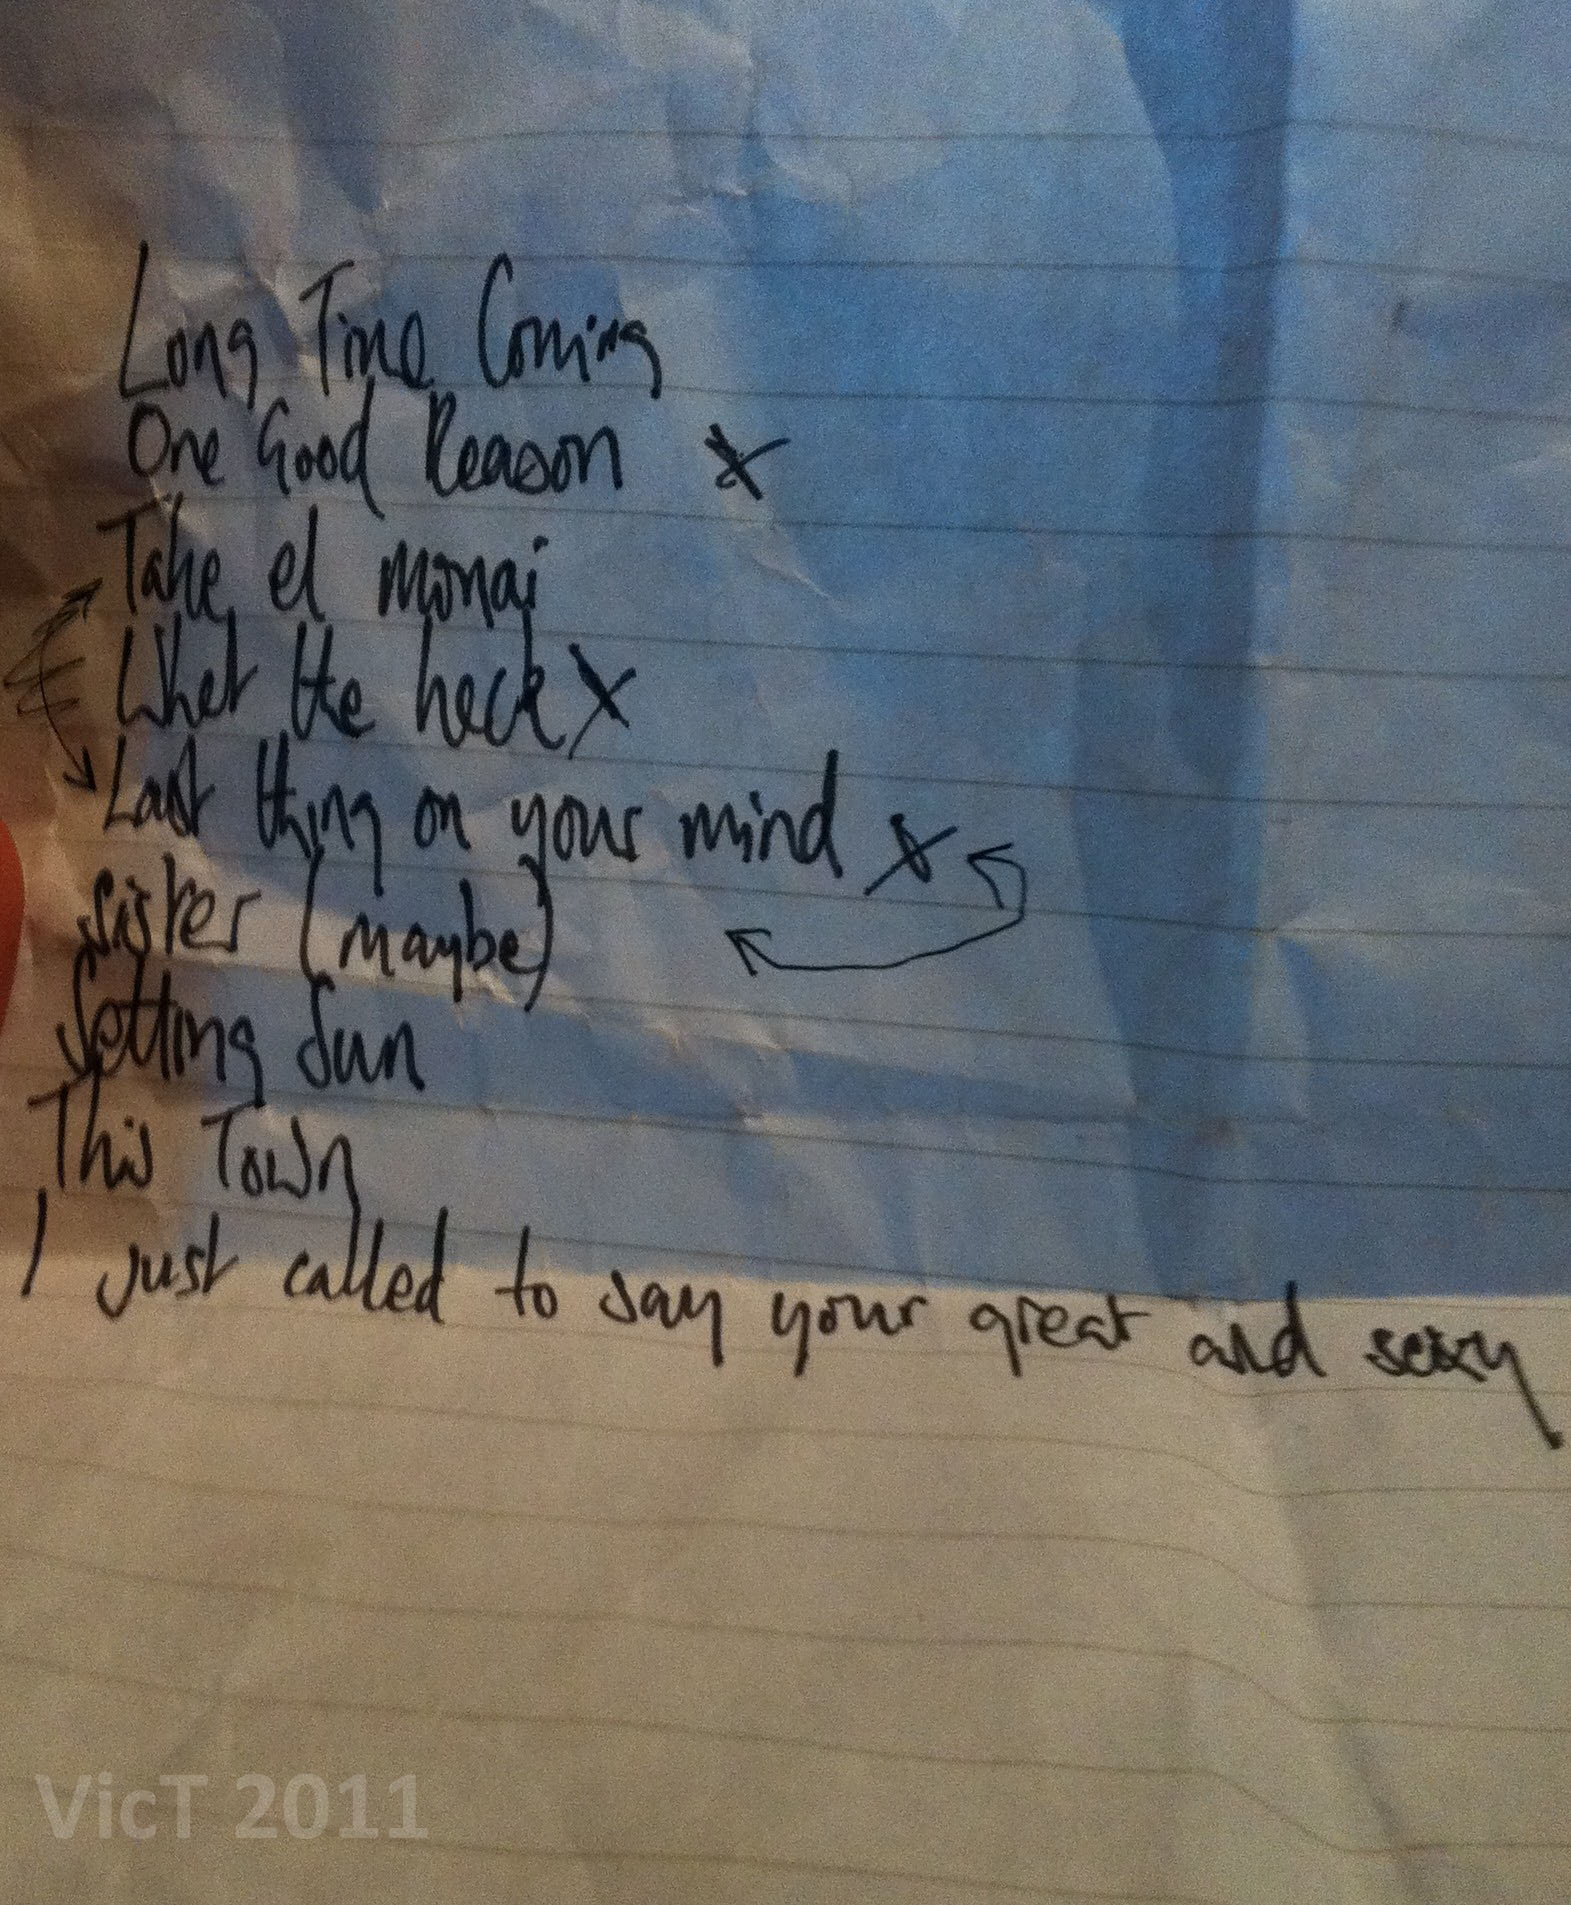 Long Time Coming
One Good Reason X
Take el monai
What the heck X
Last thing on your mind X
Sister (maybe)
Setting Sun
This Town
I just called to say your great and sexy
VicT 2011